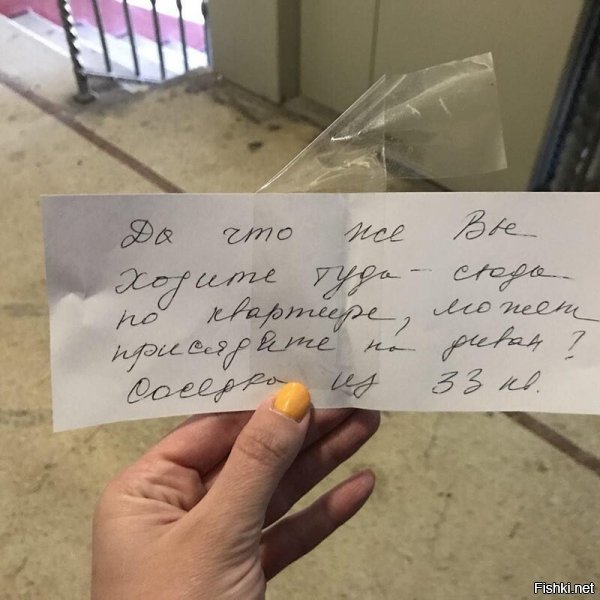 Да что же Вы
ходите туда-сюда
по квартире, может
присядете на диван?
Соседка из 33 кв.
Fishki.net